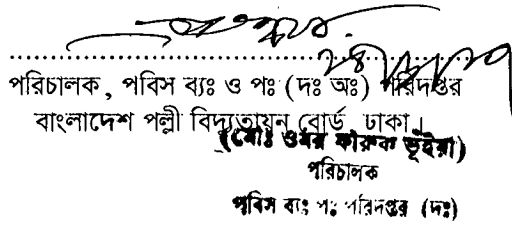 পরিচালক, পবিস ব্যঃ ও পঃ (দঃ অঃ) পরিদপ্তর
বাংলাদেশ পল্লী বিদ্যুতায়ন বোর্ড, ঢাকা।
(মোঃ ওমর ফারুক ভূঁইয়া)
পরিচালক
পবিস ব্যঃ পঃ পরিদপ্তর (দঃ)